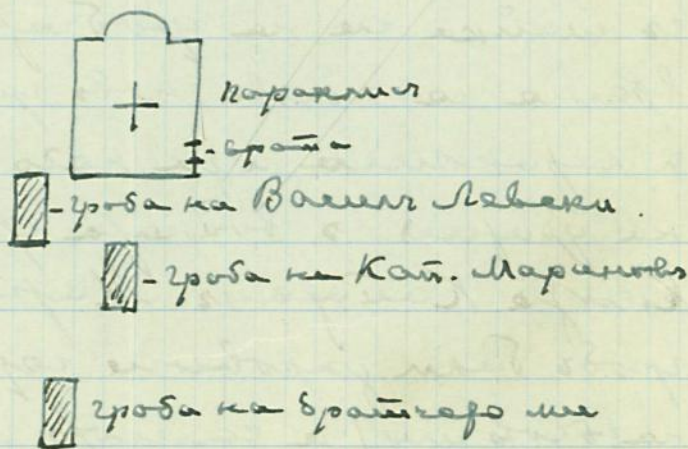 параклисъ
- врата
- гроба на Василъ Левски.
- гроба на Кап. Мариновъ
гроба на братчеда ми